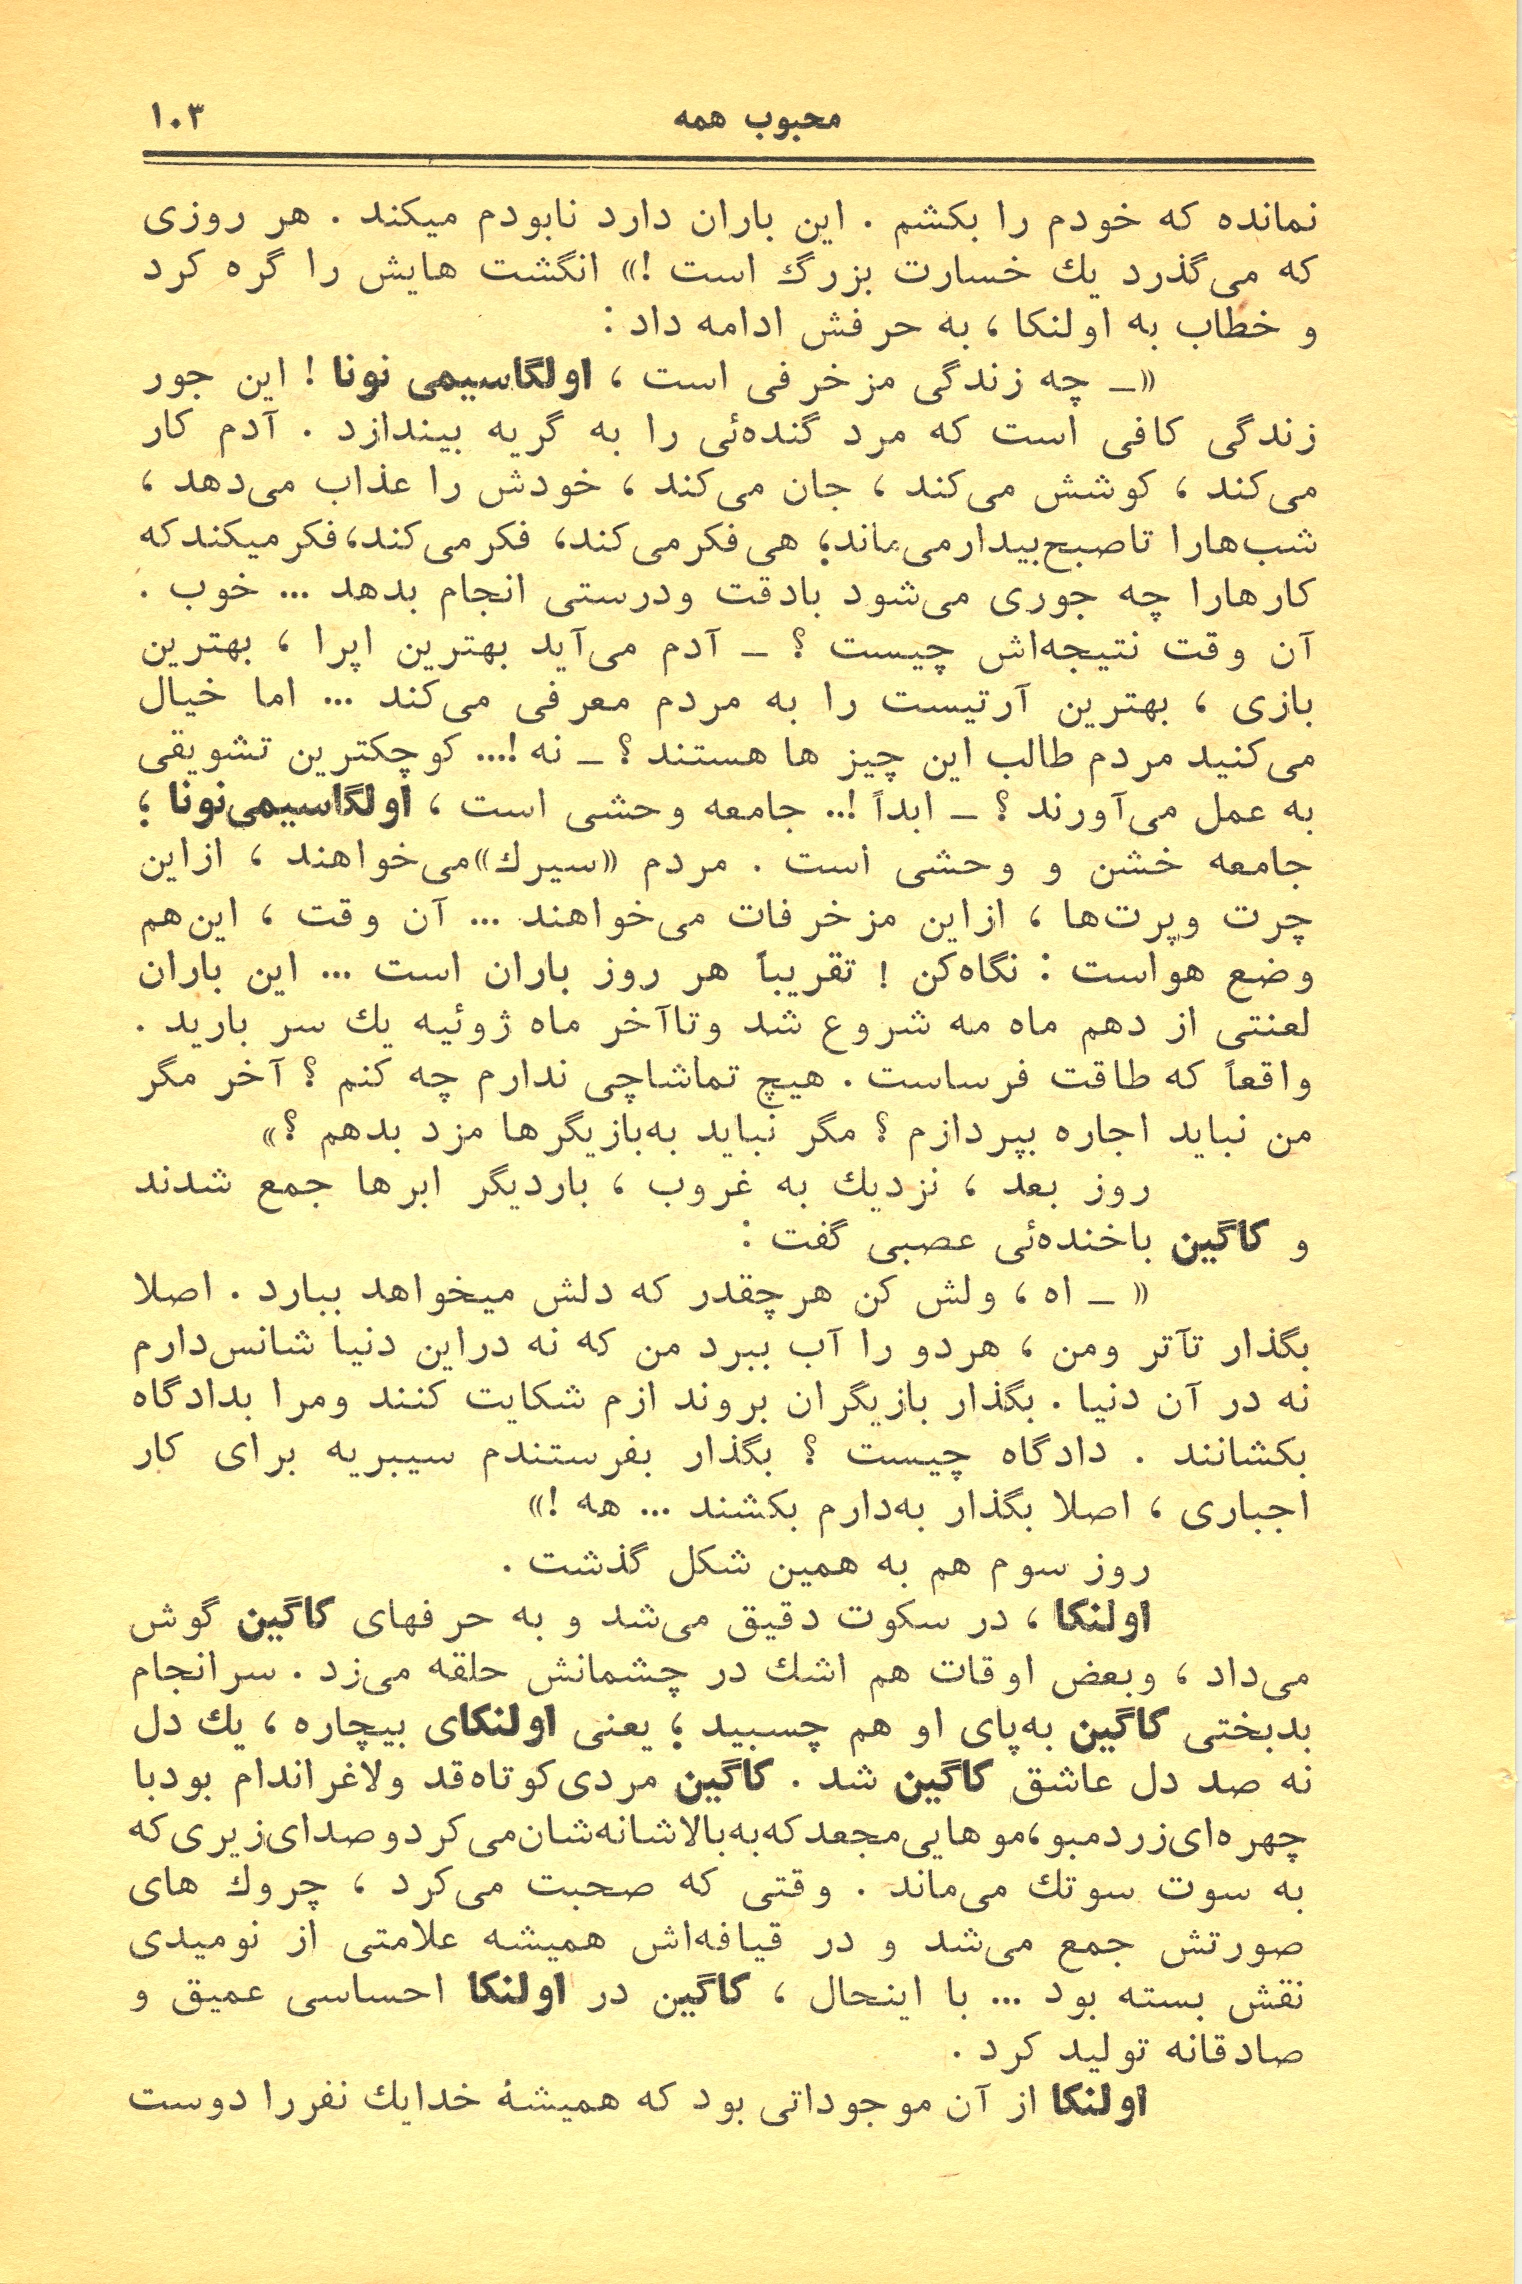 محبوب همه ۱۰۳
نمانده که خودم را بکشم . این باران دارد نابودم میکند . هر روزی
که می‌گذرد یك خسارت بزرگ است !» انگشت هایش را گره کرد
و خطاب به اولنکا ، به حرفش ادامه داد :
«ـ چه زندگی مزخرفی است ، اولگاسیمی نونا ! این جور
زندگی کافی است که مرد گنده‌ئی را به گریه بیندازد . آدم کار
می‌کند ، کوشش می‌کند ، جان می‌کند ، خودش را عذاب می‌دهد ،
شب‌هارا تاصبح‌بیدارمی‌ماند؛ هی‌فکرمی‌کند، فکرمی‌کند،فکرمیکندکه
کارهارا چه جوری می‌شود بادقت ودرستی انجام بدهد ... خوب .
آن وقت نتیجه‌اش چیست ؟ ـ آدم می‌آید بهترین اپرا ، بهترین
بازی ، بهترین آرتیست را به مردم معرفی می‌کند ... اما خیال
می‌کنید مردم طالب این چیز ها هستند ؟ ـ نه !... کوچکترین تشویقی
به عمل می‌آورند ؟ ـ ابداً !.. جامعه وحشی است ، اولگاسیمی‌نونا ؛
جامعه خشن و وحشی است . مردم «سیرك»می‌خواهند ، ازاین
چرت وپرت‌ها ، ازاین مزخرفات می‌خواهند ... آن وقت ، این‌هم
وضع هواست : نگاه‌کن ! تقریباً هر روز باران است ... این باران
لعنتی از دهم ماه مه شروع شد وتاآخر ماه ژوئیه یك سر بارید .
واقعاً که طاقت فرساست . هیچ تماشاچی ندارم چه کنم ؟ آخر مگر
من نباید اجاره بپردازم ؟ مگر نباید به‌بازیگرها مزد بدهم ؟»
روز بعد ، نزدیك به غروب ، باردیگر ابرها جمع شدند
و کاگین باخنده‌ئی عصبی گفت :
« ـ اه ، ولش کن هرچقدر که دلش میخواهد ببارد . اصلا
بگذار تآتر ومن ، هردو را آب ببرد من که نه دراین دنیا شانس‌دارم
نه در آن دنیا . بگذار بازیگران بروند ازم شکایت کنند ومرا بدادگاه
بکشانند . دادگاه چیست ؟ بگذار بفرستندم سیبریه برای کار
اجباری ، اصلا بگذار به‌دارم بکشند ... هه !»
روز سوم هم به همین شکل گذشت .
اولنکا ، در سکوت دقیق می‌شد و به حرفهای کاگین گوش
می‌داد ، وبعض اوقات هم اشك در چشمانش حلقه می‌زد . سرانجام
بدبختی کاگین به‌پای او هم چسبید ؛ یعنی اولنکای بیچاره ، یك دل
نه صد دل عاشق کاگین شد . کاگین مردی‌کوتاه‌قد ولاغراندام بودبا
چهره‌ای‌زردمبو،موهایی‌مجعدکه‌به‌بالاشانه‌شان‌می‌کردوصدای‌زیری‌که
به سوت سوتك می‌ماند . وقتی که صحبت می‌کرد ، چروك های
صورتش جمع می‌شد و در قیافه‌اش همیشه علامتی از نومیدی
نقش بسته بود ... با اینحال ، کاگین در اولنکا احساسی عمیق و
صادقانه تولید کرد .
اولنکا از آن موجوداتی بود که همیشهٔ خدایك نفررا دوست